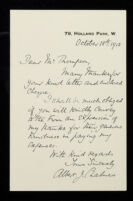 79, HOLLAND PARK, W.
October 18th 1912
Dear Mr Thompson,
Many thanks for
your kind letter and enclosed
cheque.
I shall be much obliged
if you will kindly convey
to the Firm an expression of
my thanks for their generous
kindness in paying my
expenses.
With kind regards
Yours Sincerely
Albert J.